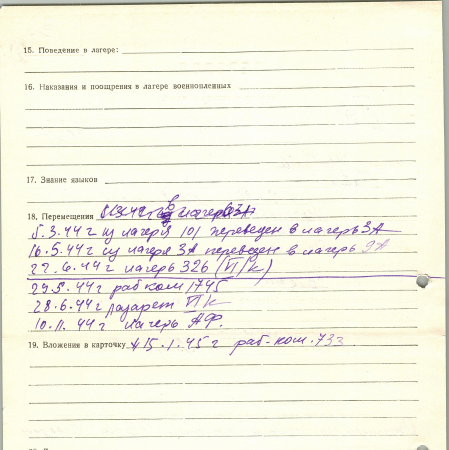 15. Поведение в лагере:
16. Наказания и поощрения в лагере военнопленных
17. Знание языков
18. Перемещения в лагерь 3А
5.3.44 г из лагеря 101 переведен в лагерь 3А
16.5.44 г из лагеря 3А переведен в лагерь 9А
22.6.44 г лагерь 326 (VI/К)
29.5.44 г раб ком 1745
28.6.44 г лазарет VI К
10.11.44 г лагерь АФ.
19. Вложения в карточку 15.1.45 г раб-ком. 733